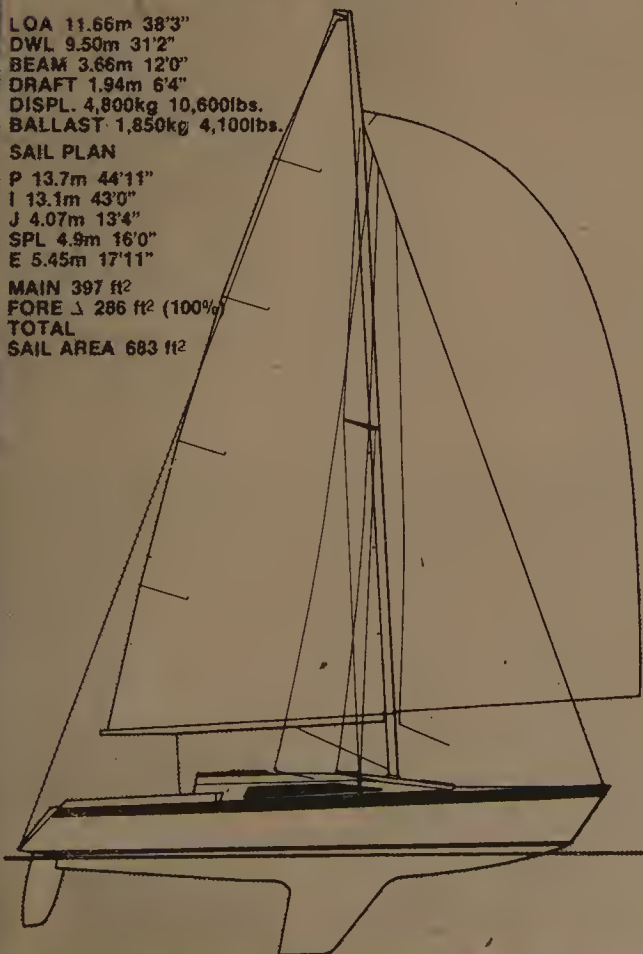 LOA 11.66m 38'3"
DWL 9.50m 31'2"
BEAM 3.66m 12'0"
DRAFT 1.94m 6'4"
DISPL. 4,800kg 10,600lbs.
BALLAST 1,850kg 4,100lbs.
SAIL PLAN
P 13.7m 44'11"
I 13.1m 43'0"
J 4.07m 13'4"
SPL 4.9m 16'0"
E 5.45m 17'11"
MAIN 397 ft²
FORE △ 286 ft² (100%)
TOTAL
SAIL AREA 683 ft²